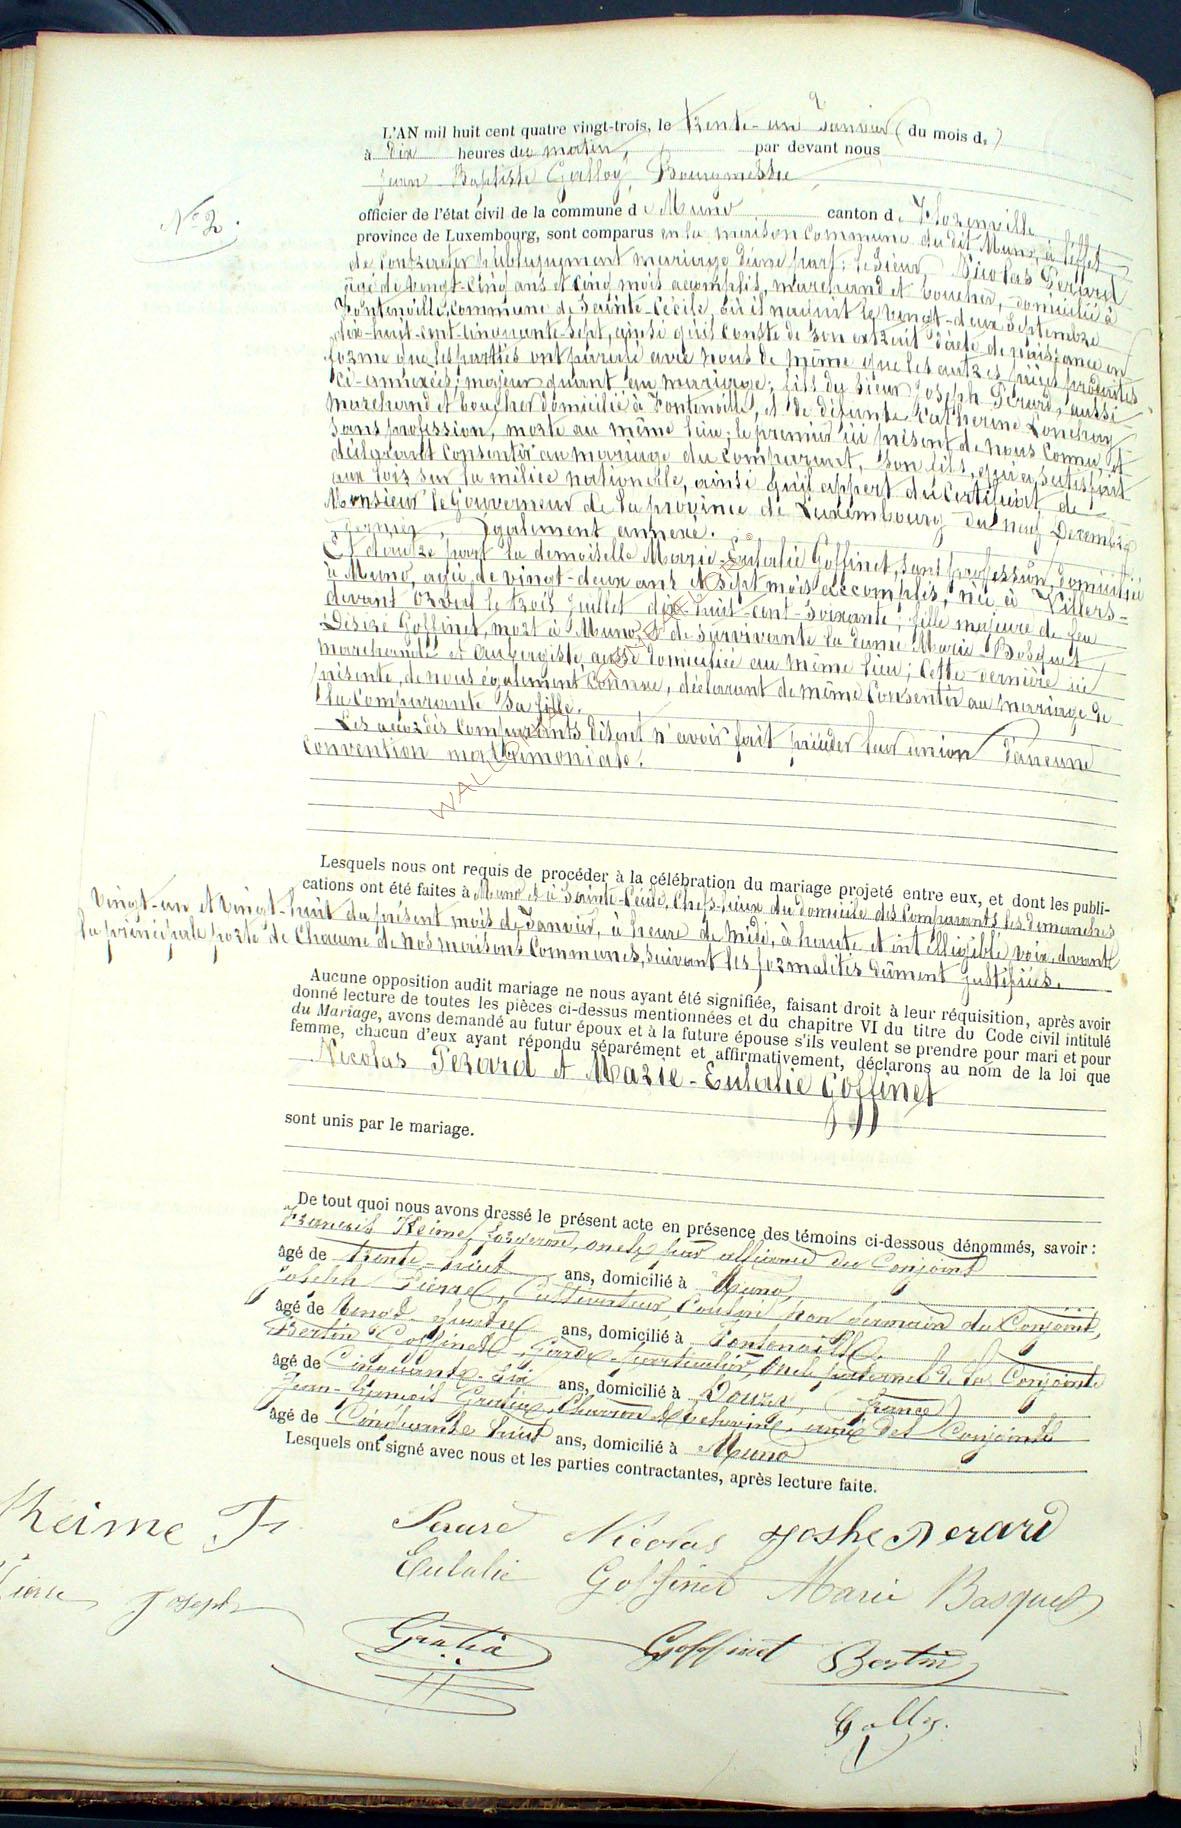 L'AN mil huit cent quatre vingt-trois, le trente-un Janvier (du mois d.)
à dix heures du matin, par devant nous
Jean Baptiste Galloy, Bourgmestre
N° 2.
officier de l'état civil de la commune de Muno canton de Florenville
province de Luxembourg, sont comparus en la maison commune du dit Muno, à l'effet
de contracter publiquement mariage d'une part: le sieur Nicolas Perard
âgé de vingt-cinq ans et cinq mois accomplis, marchand et boucher, domicilié à
Fontenoille, commune de Sainte-Cécile, où il naquit le vingt-deux Septembre
dix-huit-cent-cinquante-sept, ainsi qu'il conste de son extrait d'acte de naissance en
forme que les parties ont paraphé avec nous de même que les autres pièces produites
ci-annexées; majeur quant au mariage, fils du sieur Joseph Pérard, aussi
marchand et boucher domicilié à Fontenoille, et de défunte Catherine Lonchay
sans profession, morte au même lieu; le premier ici présent de nous connu, et
déclarant consentir au mariage du comparant, son fils, qui a satisfait
aux lois sur la milice nationale, ainsi qu'il appert du certificat de
Monsieur le Gouverneur de la province de Luxembourg du neuf Décembre
dernier, également annexé.
Et d'autre part la demoiselle Marie-Eulalie Goffinet, sans profession, domiciliée
à Muno, âgée de vingt-deux ans et sept mois accomplis, née à Villers-
devant Orval le trois Juillet dix-huit-cent-soixante; fille majeure de feu
Désiré Goffinet, mort à Muno, et de survivante la dame Marie Bosquet,
marchande et aubergiste, aussi domiciliée au même lieu; cette dernière ici
présente, de nous également connue, déclarant de même consentir au mariage de
la comparante sa fille.
Les accordés comparants disent n'avoir fait précéder leur union d'aucune
convention matrimoniale.
Lesquels nous ont requis de procéder à la célébration du mariage projeté entre eux, et dont les publi-
cations ont été faites à Muno et à Sainte-Cécile, chefs-lieux du domicile des comparants les dimanches
vingt-un et vingt-huit du présent mois de Janvier, à heure de midi, à haute et intelligible voix, devant
la principale porte de chacune de nos maisons communes, suivant les formalités dûment justifiées.
Aucune opposition audit mariage ne nous ayant été signifiée, faisant droit à leur réquisition, après avoir
donné lecture de toutes les pièces ci-dessus mentionnées et du chapitre VI du titre du Code civil intitulé
du Mariage, avons demandé au futur époux et à la future épouse s'ils veulent se prendre pour mari et pour
femme, chacun d'eux ayant répondu séparément et affirmativement, déclarons au nom de la loi que
Nicolas Perard et Marie-Eulalie Goffinet
sont unis par le mariage.
De tout quoi nous avons dressé le présent acte en présence des témoins ci-dessous dénommés, savoir:
François Kheime, forgeron, oncle par alliance du Conjoint
âgé de trente-huit ans, domicilié à Muno
Joseph Pierre, Cultivateur, Cousin non germain du Conjoint,
âgé de Vingt-quatre ans, domicilié à Fontenoille.
Bertin Goffinet, Garde-particulier, Oncle paternel de la Conjointe
âgé de Cinquante-six ans, domicilié à Douzy, (france)
Jean-François Gratia, Charron, ami des Conjoints
âgé de Cinquante huit ans, domicilié à Muno
Lesquels ont signé avec nous et les parties contractantes, après lecture faite.
Kheime F. Perard Nicolas Joshe Perard
Eulalie Goffinet Marie Bosquet
Pierre Joseph
Gratia Goffinet Bertin
Galloy.